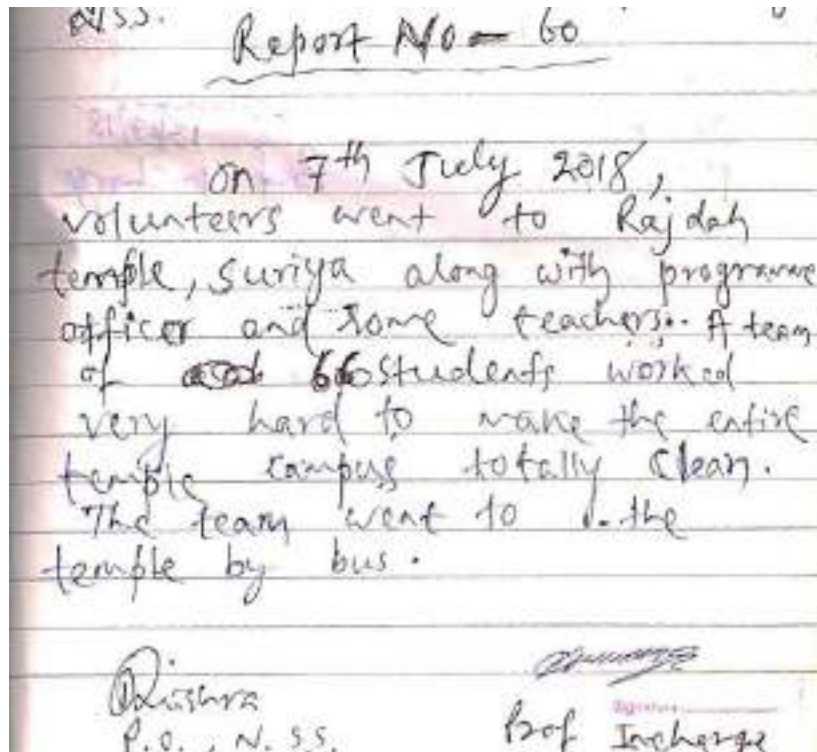 N.S.S.
Report No - 60
on 7th July 2018,
volunteers went to Rajdah
temple, suriya along with programme
officer and some teachers. A team
of 66 students worked
very hard to make the entire
temple campus totally clean.
The team went to the
temple by bus.
P.O., N.S.S.
Signature
Prof Incharge